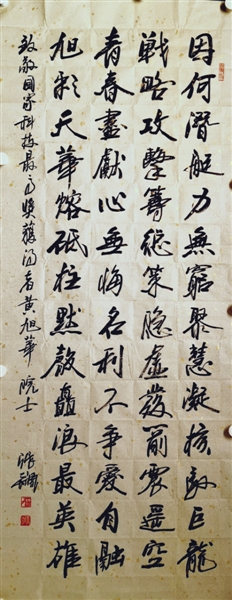 因何潛艇力無窮聚慧凝核馭巨龍
戰略攻擊籌總策隐虛發箭震遥空
青春盡獻心無悔名利不争愛自融
旭彩天華熔砥柱默啟矗浪最英雄
致敬国家科技最高獎獲得者黄旭華院士